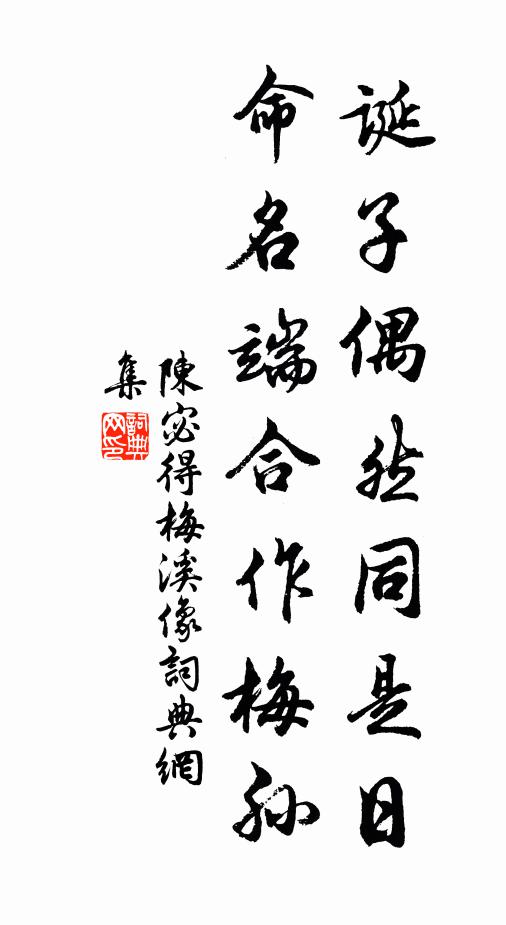 誕子偶然同是日
命名端合作梅孫
陳宓得梅溪像詞典網
集
詞典网印